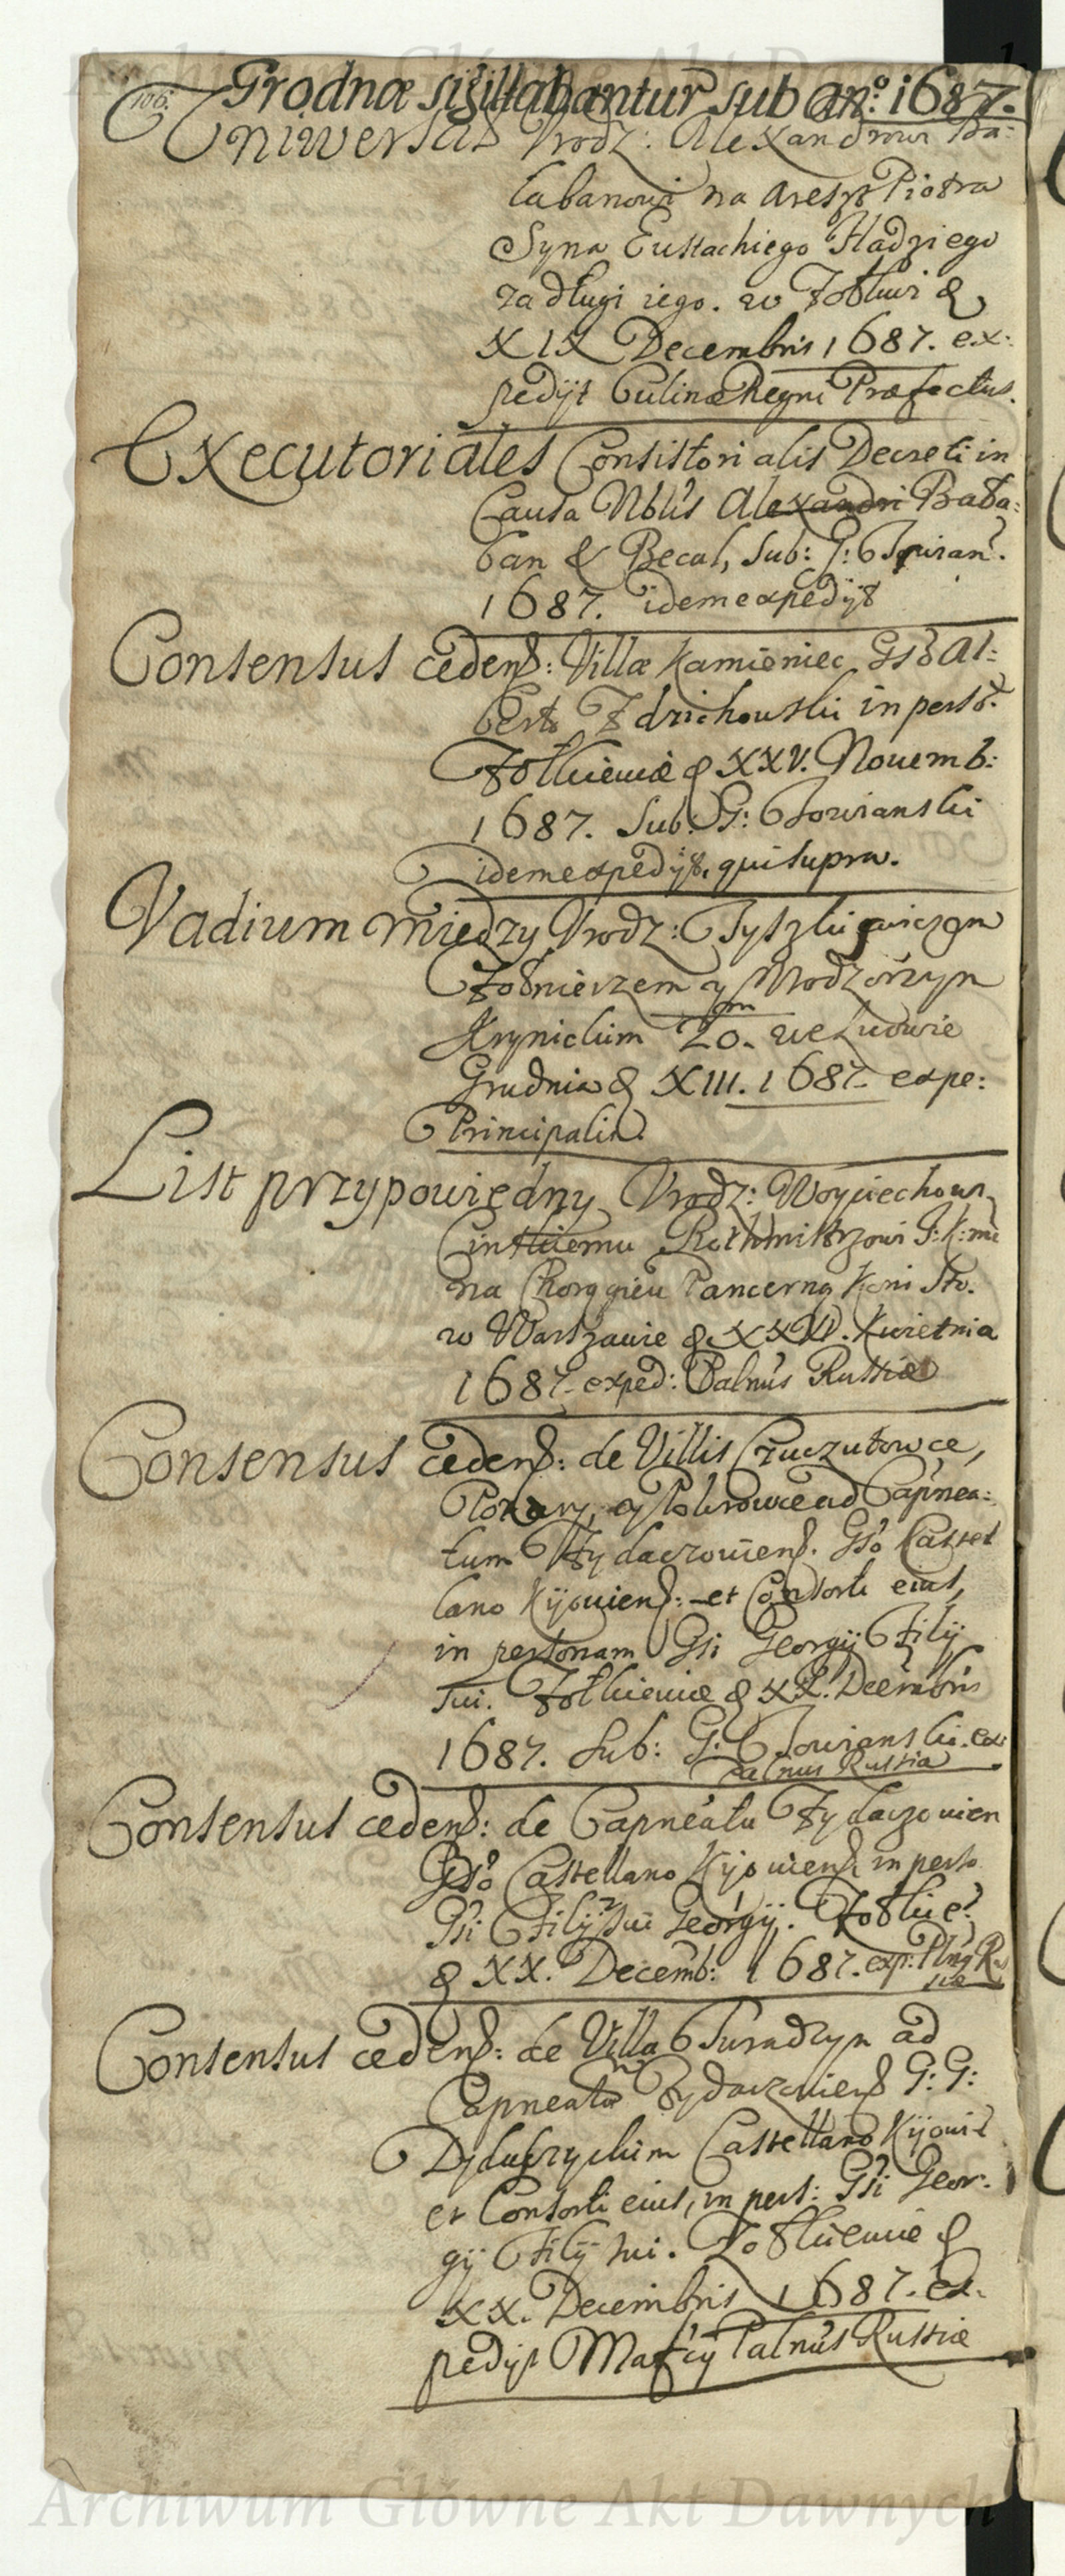 Archiwum Główne Akt Dawnych
106.
Grodnæ sigillabantur sub an.º 1687.
Uniwersał Urodz: Alexandrowi Ba:
łabanowi na areszt Piotra
Syna Eustachiego Hadziego
za długi iego. w Żołkwi d
XIX Decembris 1687. ex:
pedijt Culinæ Regni Præfectus.
Executoriales Consistorialis Decreti in
Causa Nblis Alexandri Bała:
ban & Becal, sub: G:
1687. idem expedijt
Consensus cedend: Villæ Kamieniec Gsò Al:
berto Zdzichowski in persò:
Żołkieviæ d XXV. Novemb:
1687. Sub: G: Towianski
idem expedijt, qui supra.
Vadium między Urodz: Tyszkiewiczem
Żołnierzem a Młodzorzym
Krynickim 20. we Lwowie
Grudnia d XIII. 1687. expe:
Principalis.
List przypowiedny Urodz: Woyciechowi
Cinskiemu Rothmistrzowi J:K:mci
na Chorągiew Pancerną Koni Sto.
w Warszawie d. XXVI. Kwietnia
1687. exped: Palnus Russiæ
Consensus cedend: de Villis Czuczułowce,
et Pokrowce ad Capnea:
tum Żydaczoviend. Gsò Castel
lano Kijoviend: et Consorti eius,
in personam Gsi Georgij Filij
sui. Żołkieviæ d XX. Decembris
1687. Sub: G: Towianski. ex:
Palnus Russiæ
Consensus cedend: de Capneatu Żydaczovien
Gsò Castellano Kijoviend in perso
Gsi Filij sui Georgij. Żołkie:
d XX. Decemb: 1687. exp: Plnus Rus
siæ
Consensus cedend: de Villa Suradzyn ad
Capneatu Żydaczoviend G: G:
Dzieduszyckim Castellano Kijovie
et Consorti eius, in pers: Gsi Geor:
gij Filij sui. Żołkieviæ d
XX. Decembris 1687. ex:
pedijt Mafcij Palnus Russiæ
Archiwum Główne Akt Dawnych